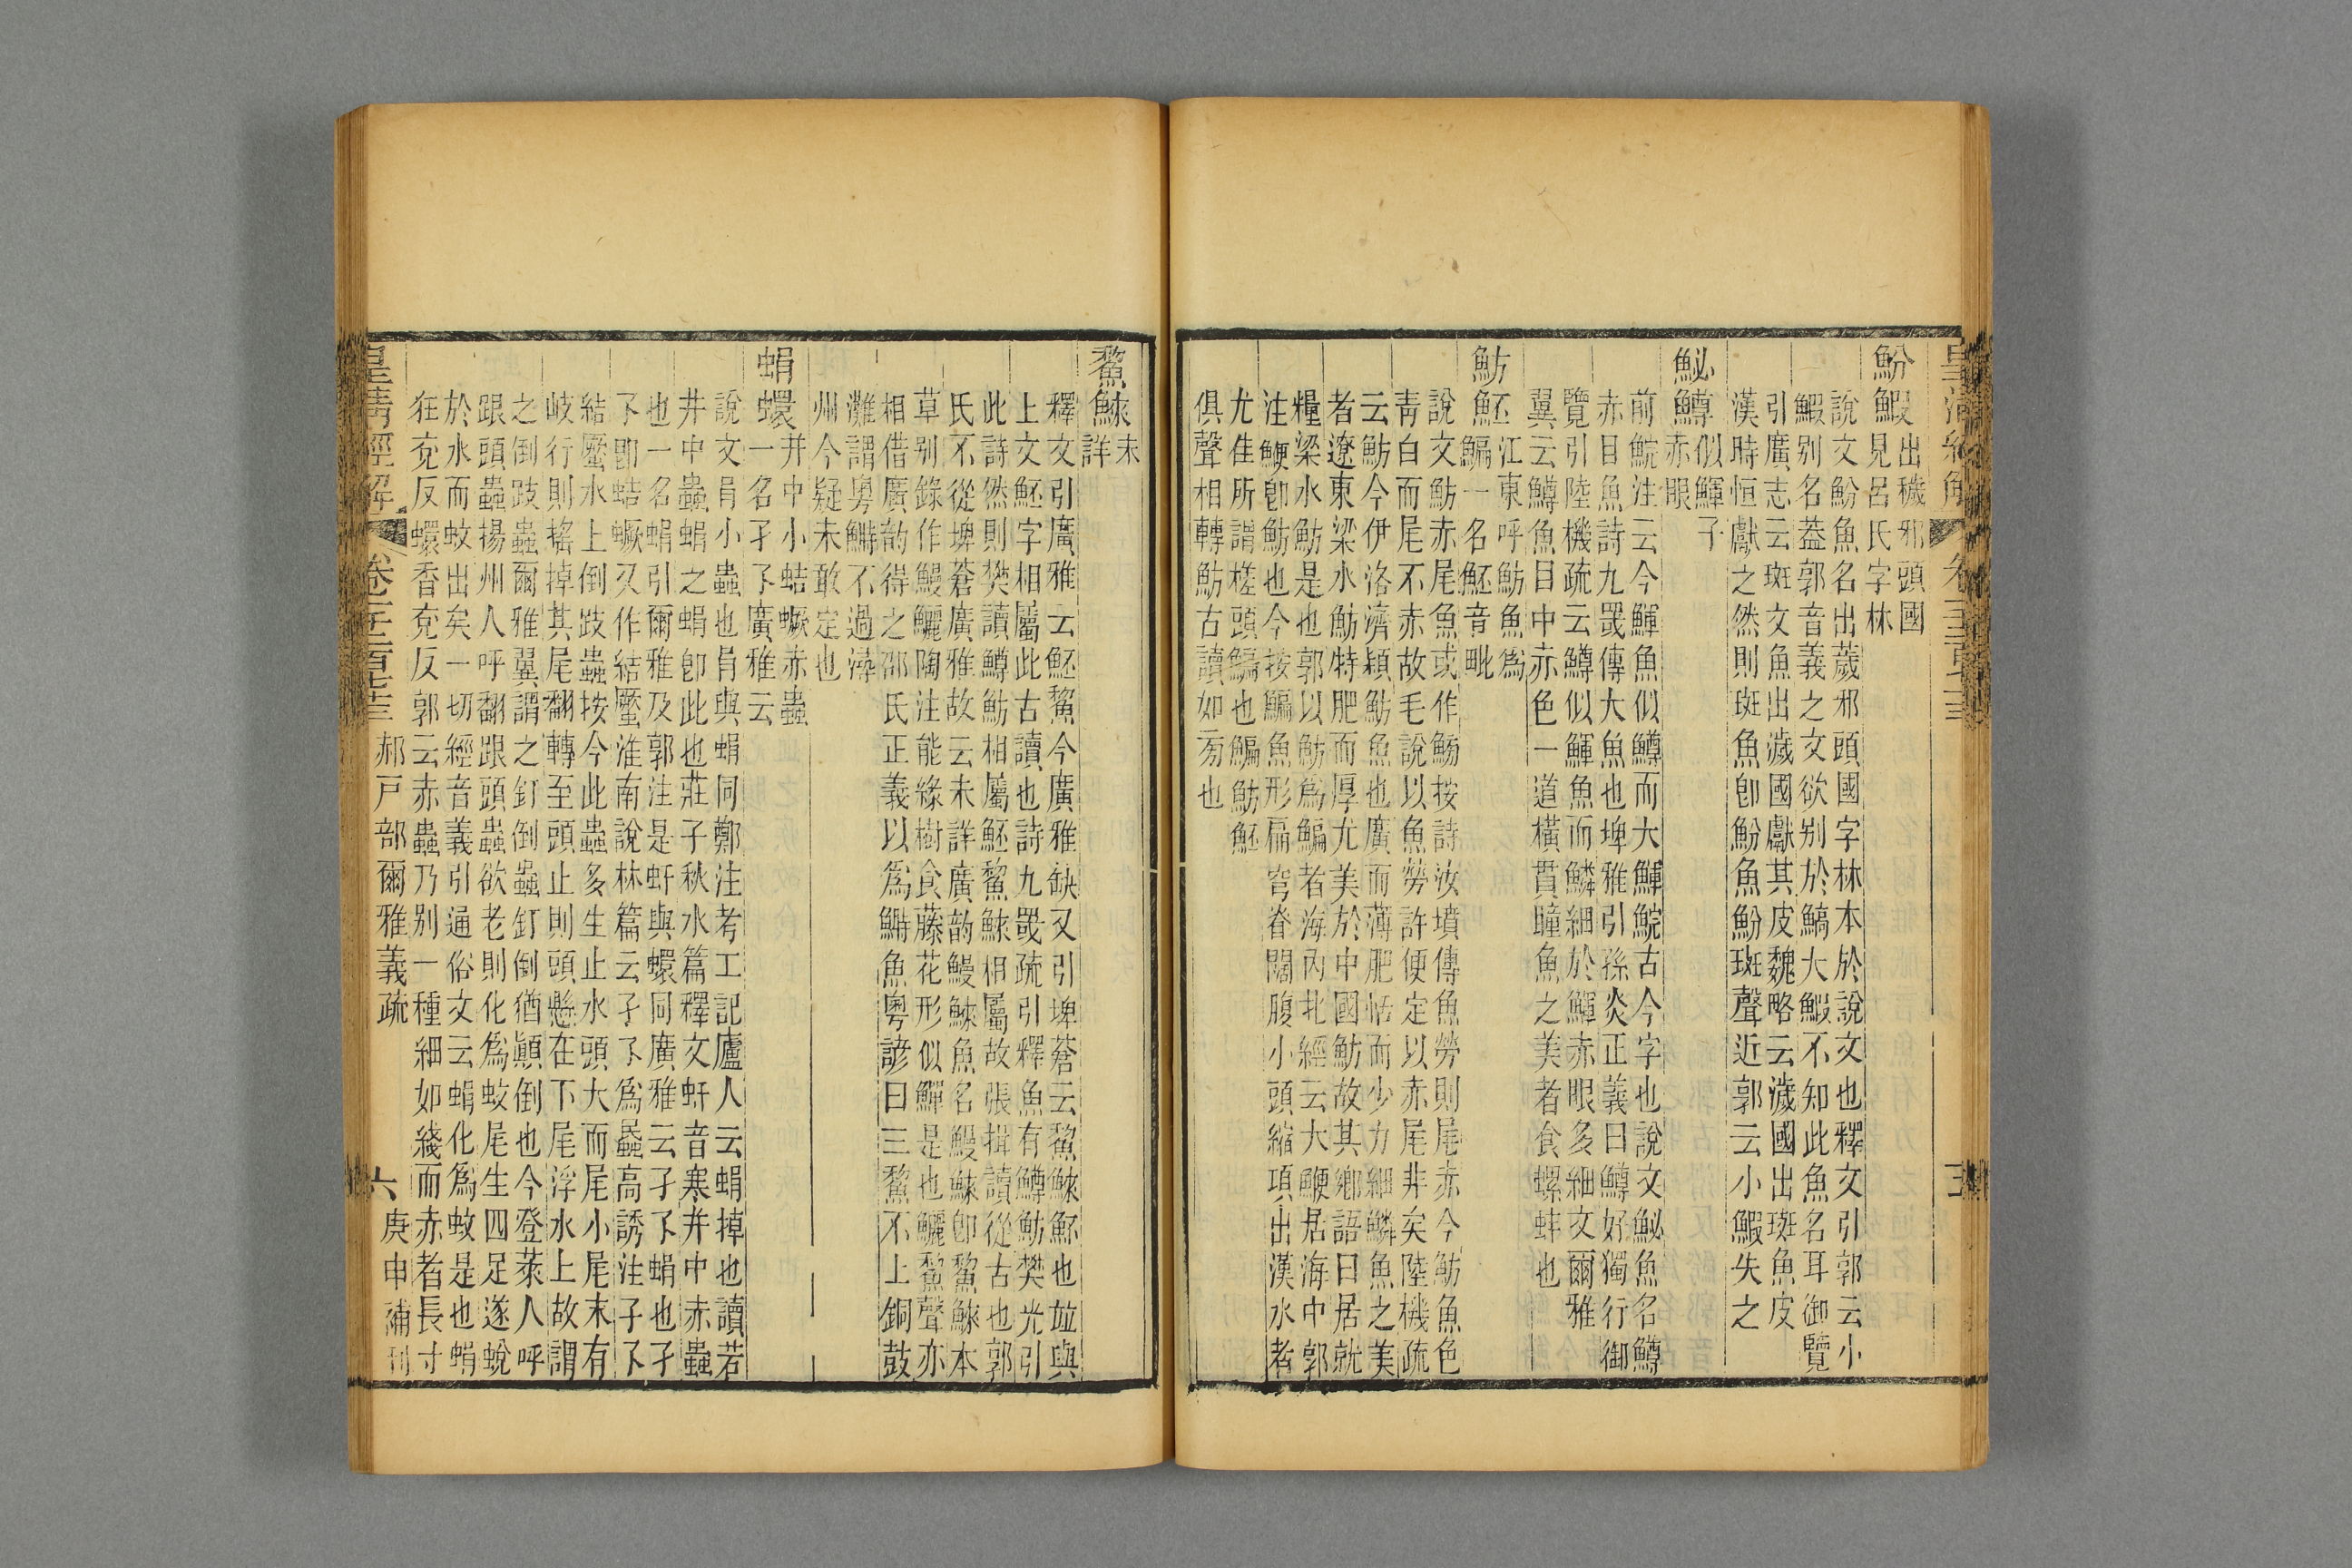 魵鰕出穢邪頭國
見呂氏字林
說文魵魚名出薉邪頭國字林本於說文也釋文引郭云小
鰕别名葢郭音義之文欲别於鰝大鰕不知此魚名耳御覽
引廣志云斑文魚出濊國獻其皮魏略云濊國出斑魚皮
漢時恒獻之然則斑魚卽魵魚魵斑聲近郭云小鰕失之
鮅鱒似鯶子
赤眼
前鯇注云今鯶魚似鱒而大鯶鯇古今字也說文鮅魚名鱒
赤目魚詩九罭傳大魚也埤雅引孫炎正義曰鱒好獨行御
覽引陸機疏云鱒似鯶魚而鱗細於鯶赤眼多細文爾雅
翼云鱒魚目中赤色一道橫貫瞳魚之美者食螺蚌也
魴魾江東呼魴魚爲
鯿一名魾音毗
說文魴赤尾魚或作鰟按詩汝墳傳魚勞則尾赤今魴魚色
靑白而尾不赤故毛說以魚勞許便定以赤尾非矣陸機疏
云魴今伊洛濟潁魴魚也廣而薄肥恬而少力細鱗魚之美
者遼東梁水魴特肥而厚尤美於中國魴故其鄉語曰居就
糧梁水魴是也郭以魴爲鯿者海內北經云大鯾居海中郭
注鯾卽魴也今按鯿魚形扁穹脊闊腹小頭縮項出漢水者
尤佳所謂槎頭鯿也鯿魴魾
俱聲相轉魴古讀如㫄也
鯬鯠未
詳
釋文引廣雅云魾鯬今廣雅缺又引埤蒼云鯬鯠魾也竝與
上文魾字相屬此古讀也詩九罭疏引釋魚有鱒魴樊光引
此詩然則樊讀鱒魴相屬魾鯬鯠相屬故張揖讀從古也郭
氏不從埤蒼廣雅故云未詳廣韵鰻鯠魚名鰻鯠卽鯬鯠本
草别錄作鰻鱺陶注能緣樹食藤花形似鱓是也鱺鯬聲亦
相借廣韵得之邵氏正義以爲鰣魚粵諺曰三鯬不上銅鼓
灘謂粵鰣不過潯
州今疑未敢定也
蜎蠉井中小蛣蟩赤蟲
一名孑孓廣雅云
說文肙小蟲也肙與蜎同鄭注考工記廬人云蜎掉也讀若
井中蟲蜎之蜎卽此也莊子秋水篇釋文虷音寒井中赤蟲
也一名蜎引爾雅及郭注是虷與蠉同廣雅云孑孓蜎也孑
孓卽蛣蟩又作結䘿淮南說林篇云孑孓爲蟁高誘注孑孓
結䘿水上倒跂蟲按今此蟲多生止水頭大而尾小尾末有
岐行則搖掉其尾翻轉至頭止則頭懸在下尾浮水上故謂
之倒跂蟲爾雅翼謂之釘倒蟲釘倒猶顚倒也今登萊人呼
跟頭蟲揚州人呼翻跟頭蟲欲老則化爲蚊尾生四足遂蛻
於水而蚊出矣一切經音義引通俗文云蜎化爲蚊是也蜎
狂兗反蠉香兗反郭云赤蟲乃别一種細如綫而赤者長寸
皇清經解
郝戸部爾雅義疏
六
庚申補刊